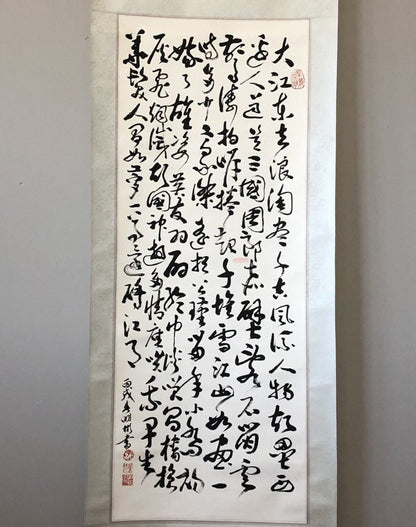 大江東去浪淘盡千古風流人物故壘西
邊人道是三國周郎赤壁亂石崩雲
驚濤拍岸捲起千堆雪江山如畫一
時多少豪傑遙想公瑾當年小喬初
嫁了雄姿英發羽扇綸巾談笑間檣櫓
灰飛烟滅故國神遊多情應笑我早生
華髮人間如夢一尊還酹江月
丙戌春明彬書